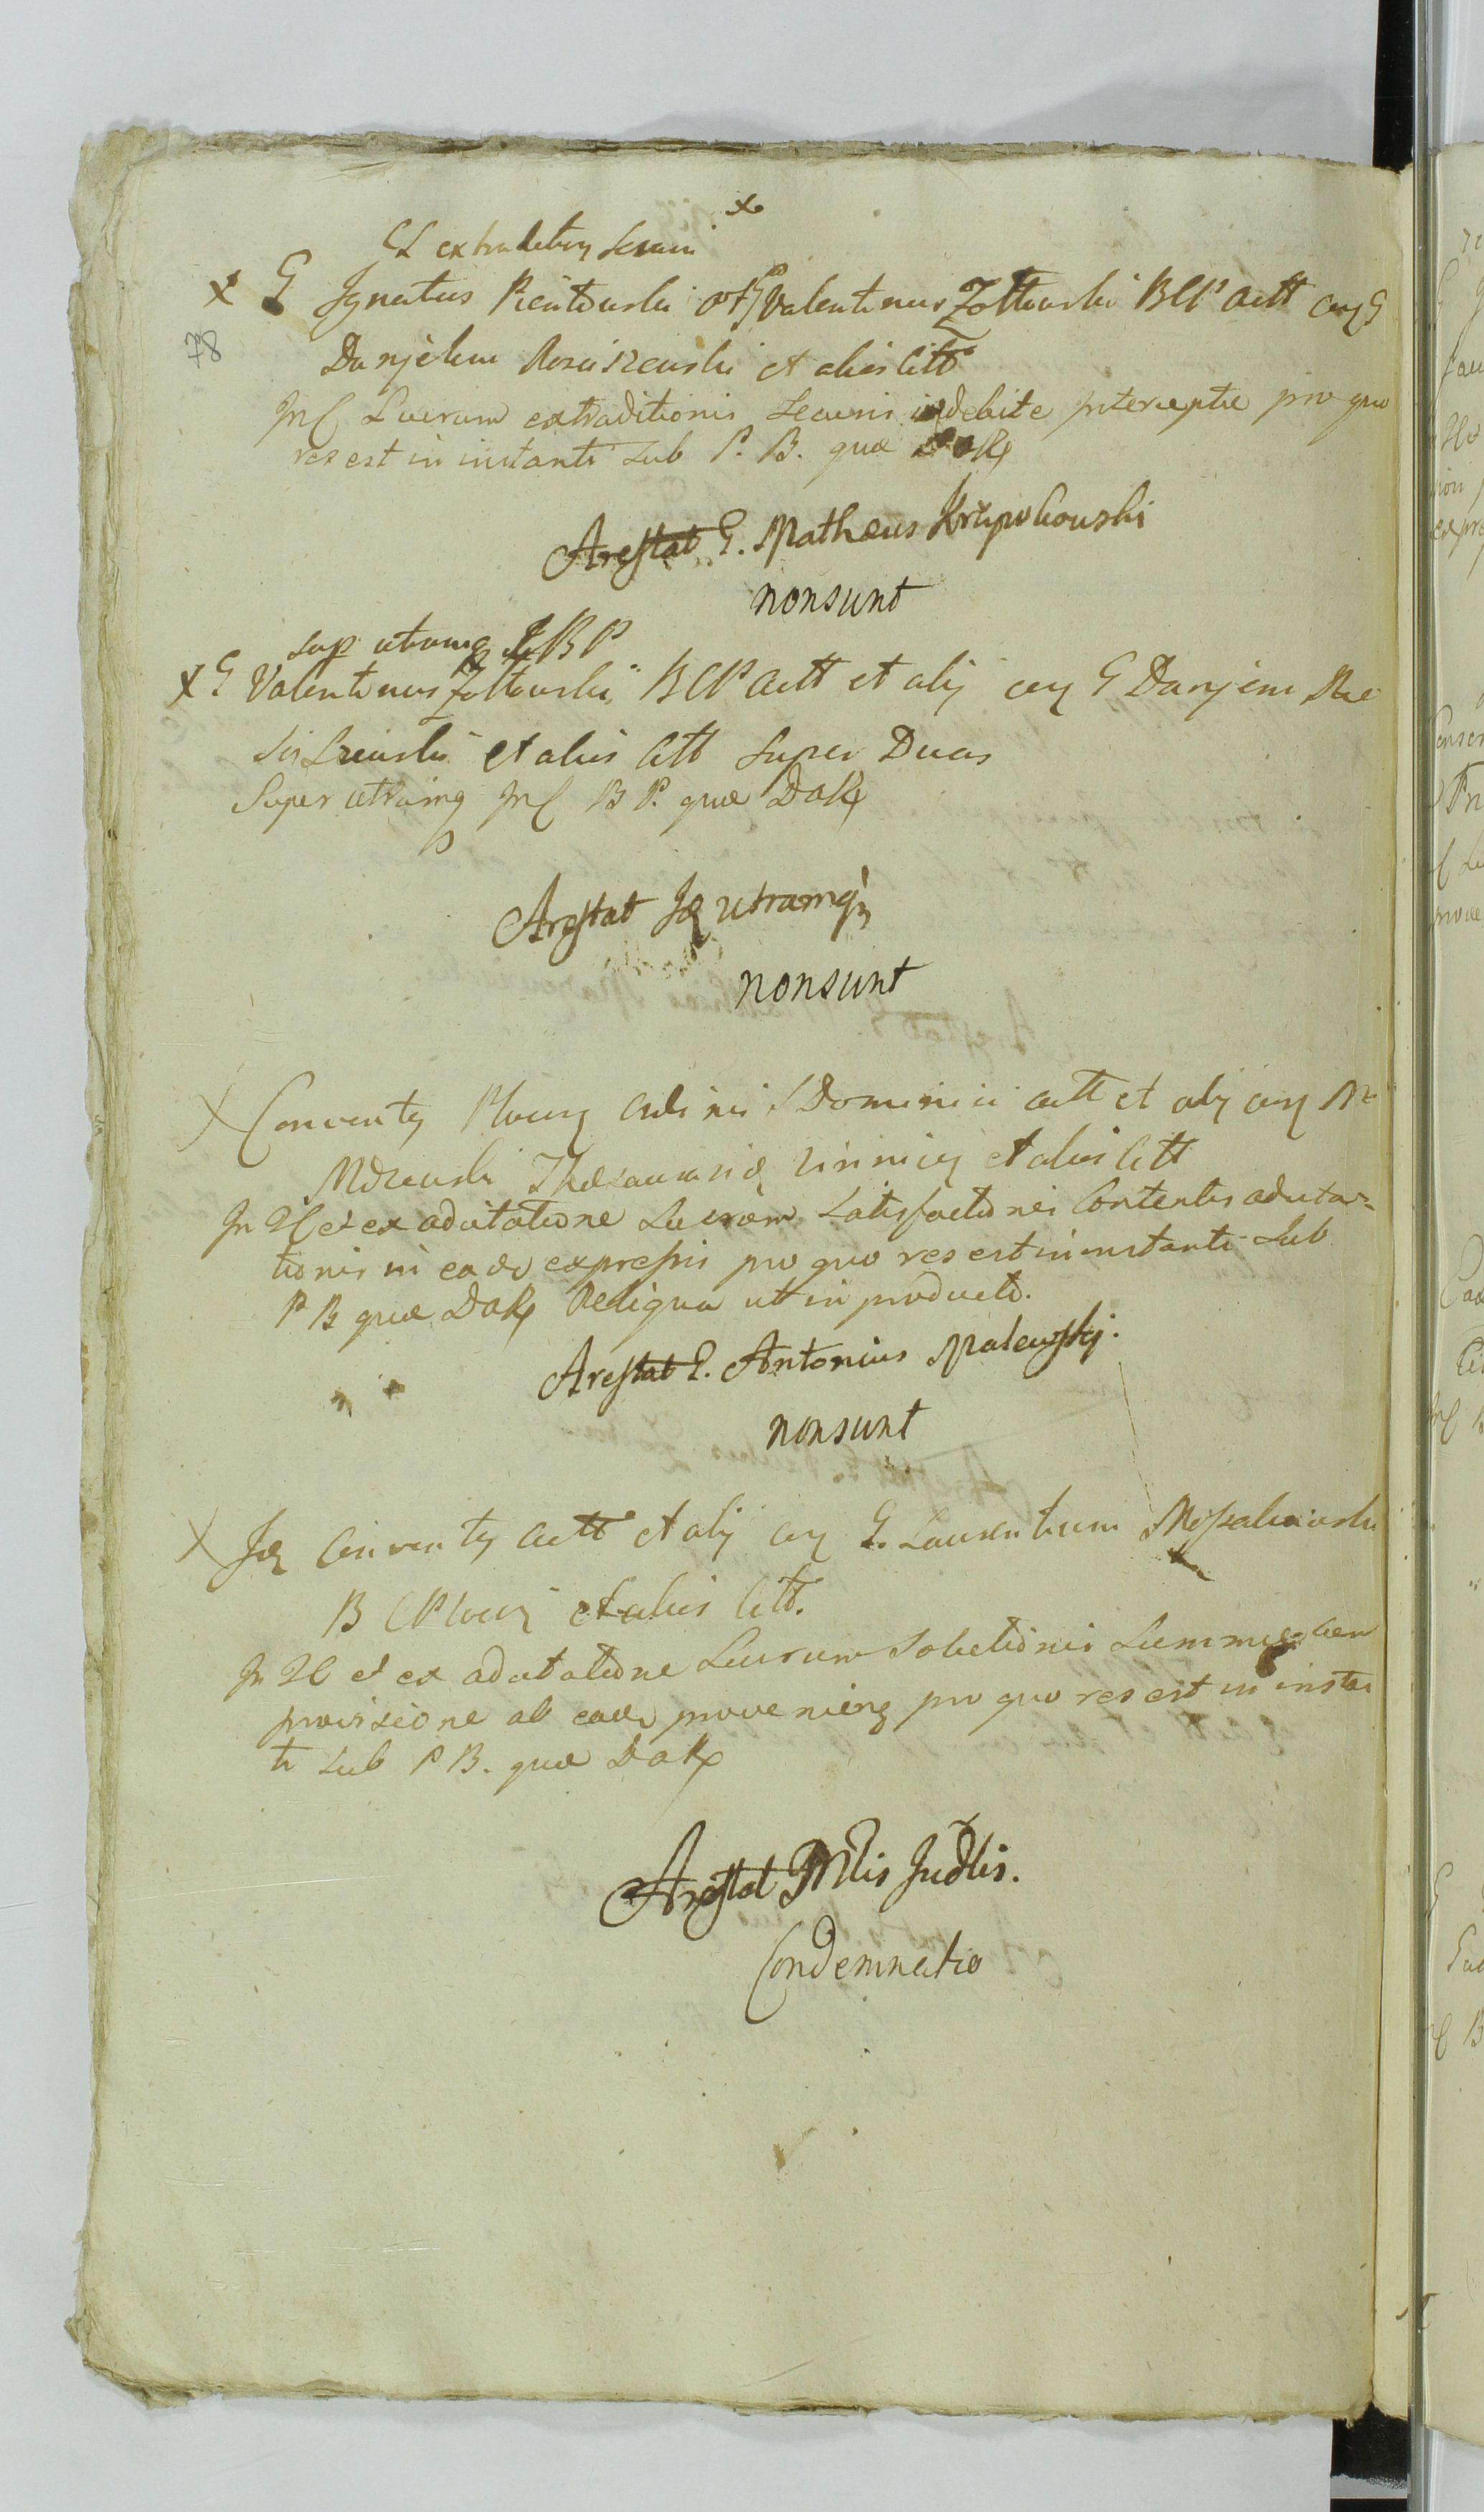 x
Et extraditionem securis
x G Ignatius Pientowski et G Valentinus Zołtowski BCP Actt cum G
78
Danjelem Rosciszewski et alios Citt
Inl Lucrum extraditionis Securis indebite interceptae pro quo
res est in instanti sub P. B. quae DaRx
Arestat G. Mathaeus Krzywkowski
non sunt
sup utramq BP
x G Valentinus Zołtowski BCP Actt et alij cum G Danjem Ro
Sciszewski et alios Citt Super Duas
Super utramq Inl B P. quae DaRx
Arestat Id utramq
non sunt
x Conventus Plocen Ordinis S Dominici Actt et alij cum
et alios Citt
In et ex adcitatione Lucrum Satisfactionis Contentis adcita=
tionis in eade expressis pro quo res est in instanti sub
P B quae DaRx Reliqua ut in producto.
Arestat G. Antonius Malewski.
non sunt
x Id Conventus Actt et alij cum G. Laurentium
B C Plocen et alios Citt.
In et ex adcitatione Lucrum Solutionis Summae cum
provisione ab eade proveniens pro quo res est in instan
ti sub P B. quae DaRx
Arestat Mlis Judlis.
Condemnatio